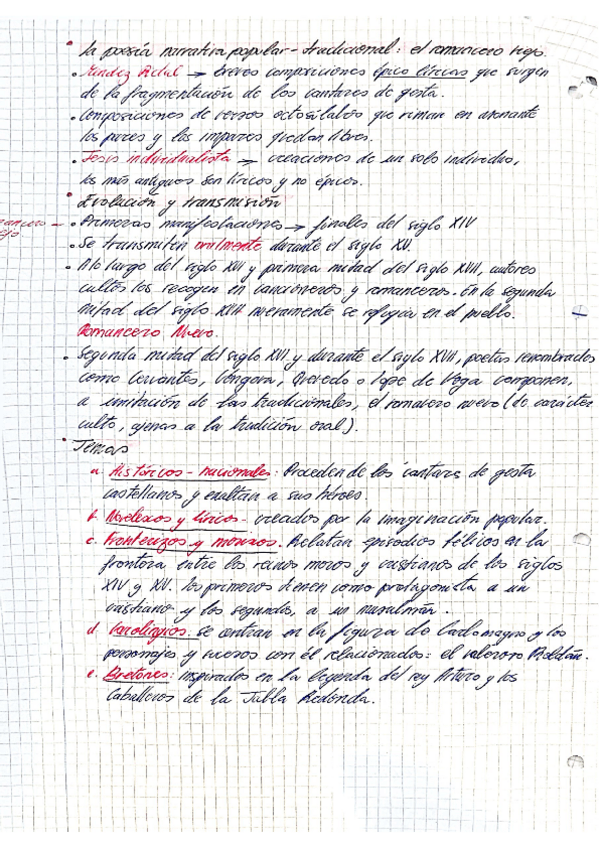 • La poesía narrativa popular - tradicional: el romancero viejo.
• Menéndez Pidal → breves composiciones épico líricas que surgen
de la fragmentación de los cantares de gesta.
• Composiciones de versos octosílabos que riman en asonante
los pares y los impares quedan libres.
• Tesis individualista → creaciones de un solo individuo,
los más antiguos son líricos y no épicos.
• Evolución y transmisión
• Primeras manifestaciones → finales del siglo XIV
• Se transmiten oralmente durante el siglo XV.
• A lo largo del siglo XVI y primera mitad del siglo XVII, autores
cultos los recogen en cancioneros y romanceros. En la segunda
mitad del siglo XVII nuevamente se refugia en el pueblo.
Romancero Nuevo.
• Segunda mitad del siglo XVI y durante el siglo XVII, poetas renombrados
como Cervantes, Góngora, Quevedo o Lope de Vega componen,
a imitación de los tradicionales, el romancero nuevo (de carácter
culto, ajenas a la tradición oral).
• Temas
a. Históricos - nacionales: Proceden de los cantares de gesta
castellanos y exaltan a sus héroes.
b. Novelescos y líricos - creados por la imaginación popular.
c. Fronterizos y moriscos. Relatan episodios bélicos en la
frontera entre los reinos moros y cristianos de los siglos
XIV y XV. Los primeros tienen como protagonista a un
cristiano y los segundos, a un musulmán.
d. Carolingios: se centran en la figura de Carlomagno y los
personajes y sucesos con él relacionados: el valeroso Roldán.
e. Bretones: inspirados en la leyenda del rey Arturo y los
Caballeros de la Tabla Redonda.